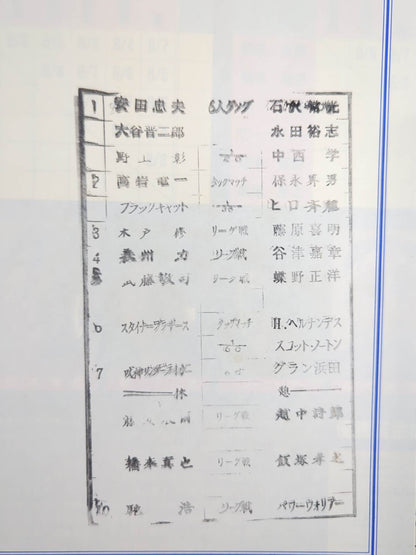 1 安田忠夫 6人タッグ 石沢常光
大谷晋二郎 永田裕志
野上彰 中西学
2 高岩竜一 タッグマッチ 保永昇男
ブラック・キャット ヒロ斉藤
3 木戸修 リーグ戦 藤原喜明
4 長州力 リーグ戦 谷津嘉章
5 武藤敬司 リーグ戦 蝶野正洋
6 スタイナーブラザース タッグマッチ H.ヘルナンデス
スコット・ノートン
7 グラン浜田
休 憩
リーグ戦 越中詩郎
橋本真也 リーグ戦 飯塚孝之
10 馳浩 リーグ戦 パワーウォリアー